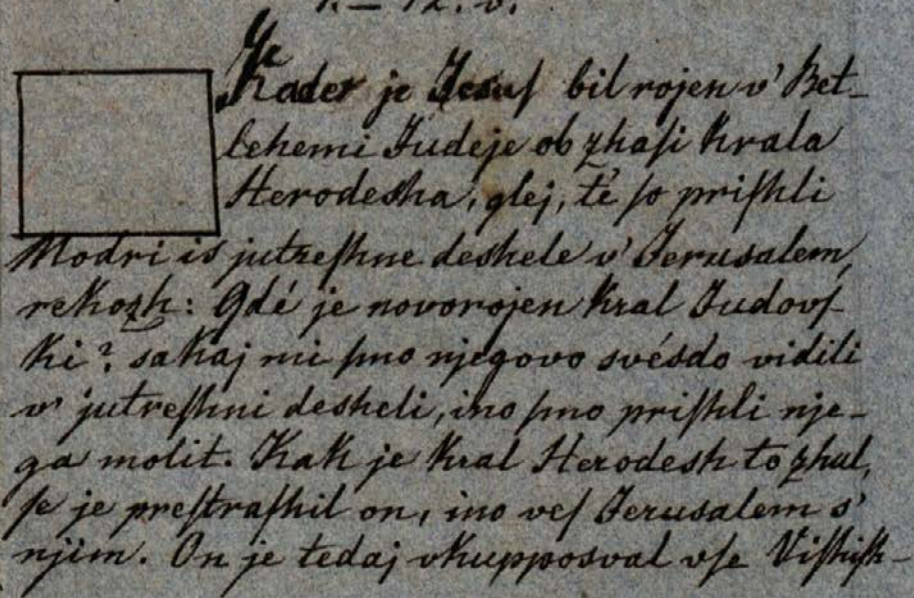 k — 12. v.
Kader je Jesuſ bil rojen v' Bet-
lehemi Judeje ob zhaſi Krala
Herodesha, glej, té ſo priſhli
Modri is jutreſhne deshele v' Jerusalem,
rekozh: Gdé je novorojen Kral Judovſ-
ki? sakaj mi ſmo njegovo svésdo vidili
v' jutreſhni desheli, ino ſmo priſhli nje-
ga molit. Kak je Kral Herodesh to zhul,
ſe je preſtraſhil on, ino veſ Jerusalem s'
njim. On je tedaj vkupposval vſe Viſhiſh-